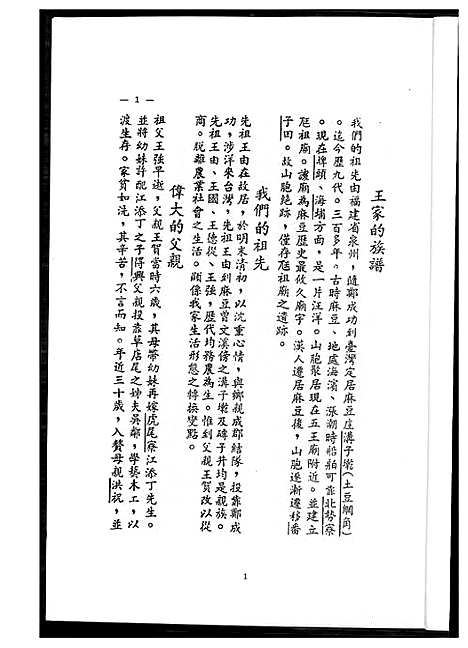 王家的族譜
我們的祖先由福建省泉州，隨鄭成功到臺灣定居麻豆庄溝子墘(土豆綢角)
。迄今歷九代。三百多年。古時麻豆、地處海濱、漲潮時船舶可靠北勢寮
。現在埤頭、海埔方面，是一片汪洋。山胞聚居現在五王廟附近。並建立
尪祖廟。該廟為麻豆歷史最攸久廟宇。漢人遷居麻豆後，山胞逐漸遷移番
子田。故山胞絕跡，僅存尪祖廟之遺跡。
我們的祖先
先祖王由在故居，於明末清初，以沈重心情，與鄉親成群結隊，投靠鄭成
功，涉洋來台灣，先祖王由到麻豆曾文溪傍之溝子墘及磚子井均是親族。
先祖王由、王國、王德從、王強，歷代均務農為生。惟到父親王賀改以從
商。脫離農業社會之生活。頗係我家生活形態之轉捩變點。
偉大的父親
祖父王強早逝，父親王賀當時六歲，其母帶幼妹再嫁虎尾寮江添丁先生。
並將幼妹許配江添丁之子得興父親投靠草店尾之姊夫吳鄰，學藝木工，以
渡生存。家貧如洗，其辛苦，不言而知。年近三十歲，入贅母親洪祝，並
— 1 —
1